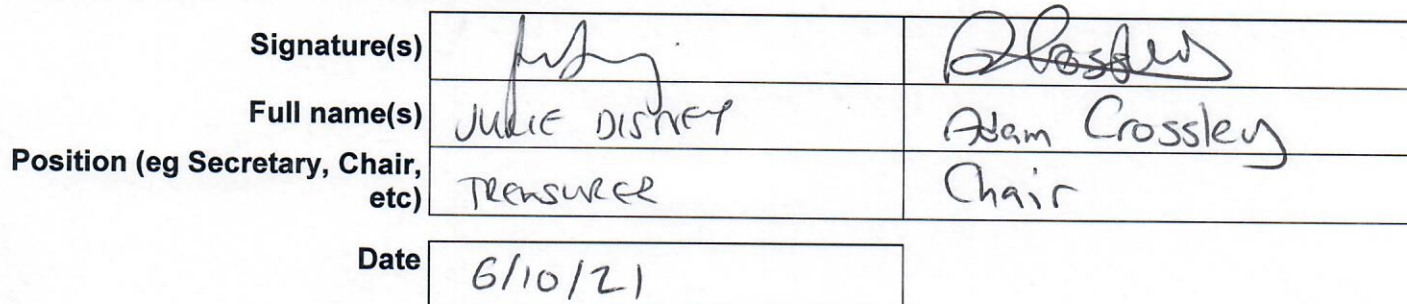 Signature(s)
Full name(s) JULIE DISNEY Adam Crossley
Position (eg Secretary, Chair,
etc) TREASURER Chair
Date 6/10/21